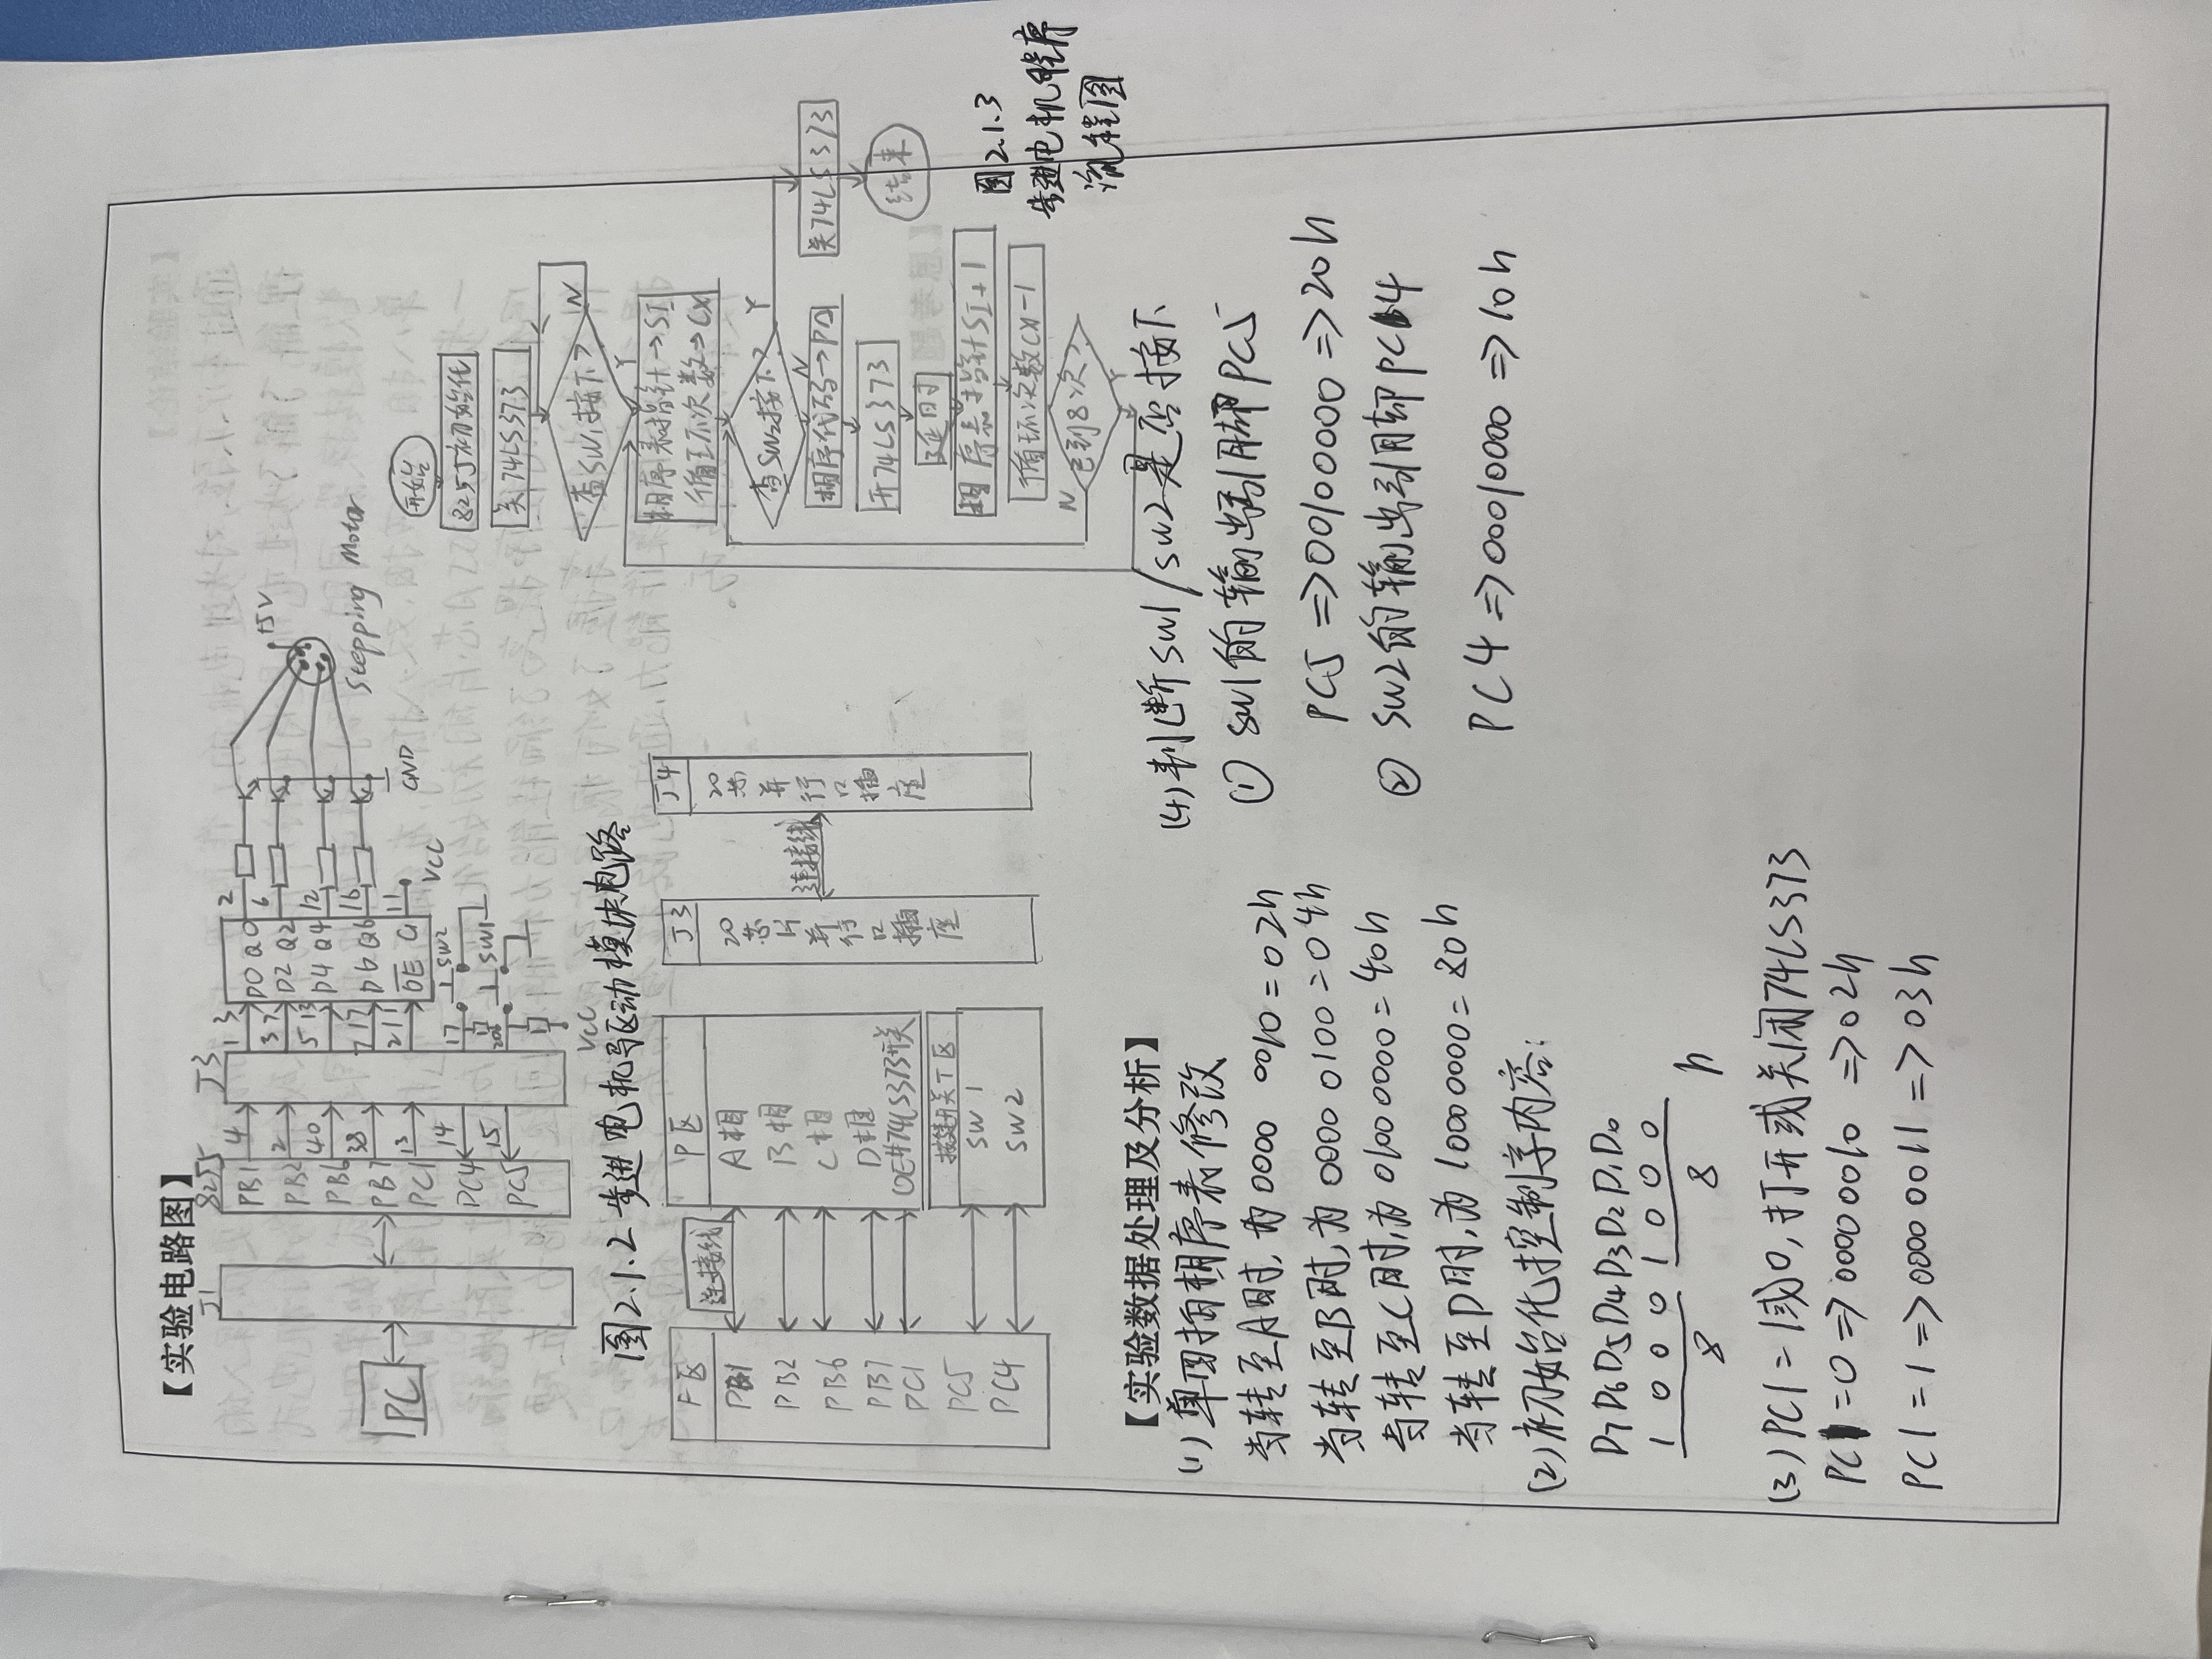 【实验电路图】
J1
8255
J3
PC
PB1 4
PB2 2
PB6 40
PB7 38
PC1 13
PC4 14
PC5 15
1 3 D0 Q0 2
3 7 D2 Q2 6
5 13 D4 Q4 12
7 17 D6 Q6 16
2 1 OE G 11 VCC
17 SW2
20 SW1
VCC
GND
+5V
Stepping Motor
图2.1.2 步进电机驱动模块电路
F区
PB1
PB2
PB6
PB7
PC1
PC5
PC4
连接线
P区
A相
B相
C相
D相
OE#74LS373开关
按键开关T区
SW1
SW2
J3
20芯片并行口插座
连接线
J4
20芯并行口插座
开始
8255初始化
关74LS373
查SW1按下?
N
Y
相序表指针→SI
循环次数→CX
查SW2按下?
Y
N
相序代码→PA
开74LS373
延时
相序表指针SI+1
循环次数CX-1
已到8次?
N
Y
关74LS373
结束
图2.1.3
步进电机程序
流程图
【实验数据处理及分析】
(1)单四拍相序表修改
当转至A时,为0000 0010=02h
当转至B时,为0000 0100=04h
当转至C时,为01000000=40h
当转至D时,为10000000=80h
(2)初始化控制字内容:
D7D6D5D4D3D2D1D0
1 0 0 0 1 0 0 0
8 8 h
(3)PC1=1或0,打开或关闭74LS373
PC1=0=>00000010=>02h
PC1=1=>00000011=>03h
(4)判断SW1/SW2是否按下
① SW1的输出引脚PC5
PC5=>00100000=>20h
② SW2的输出引脚PC4
PC4=>00010000=>10h